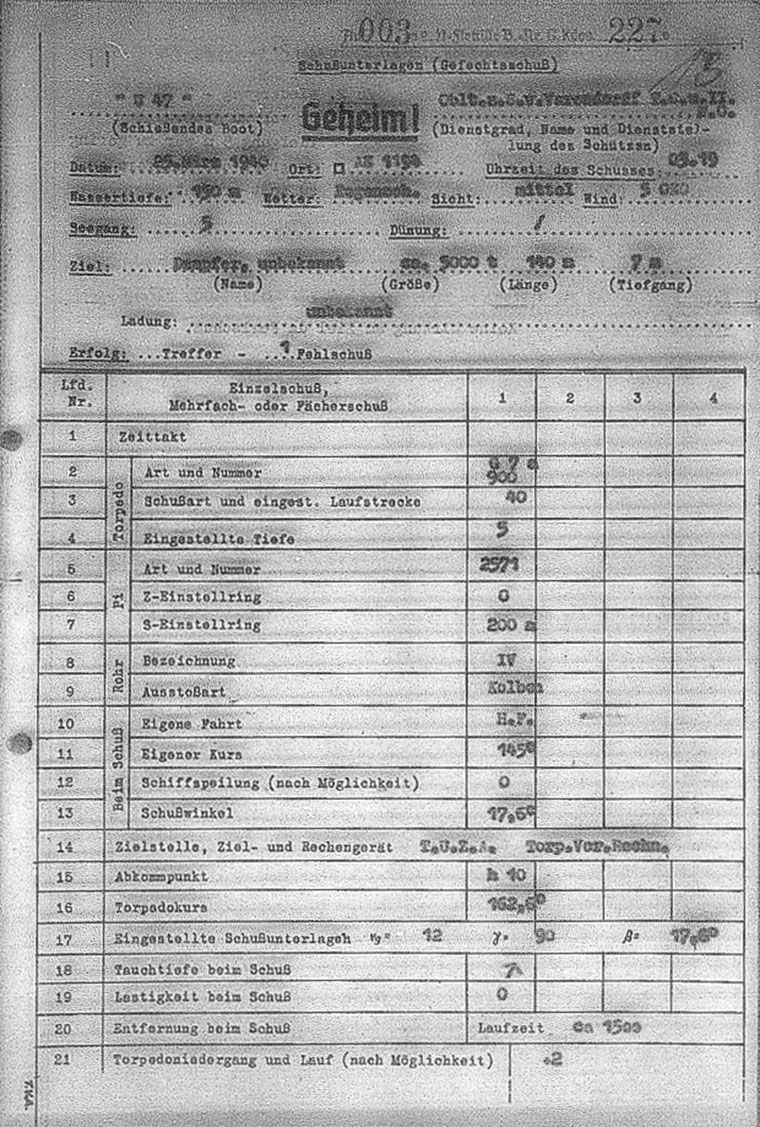 003 227
Schußunterlagen (Gefechtsschuß)
" U 47 " Geheim! Oblt.z.S.v.Varendorff
(Schießendes Boot) (Dienstgrad, Name und Dienststel-
lung des Schützen)
Datum: 25.März 1940 Ort: AN 1194 Uhrzeit des Schusses: 05.19
Wassertiefe: 150 m Wetter: Regensch. Sicht: mittel Wind: S
Seegang: 5 Dünung: /
Ziel: Dampfer, unbekannt ca. 5000 t 140 m 7 m
(Name) (Größe) (Länge) (Tiefgang)
Ladung: unbekannt
Erfolg: ...Treffer - ..1.Fehlschuß
Lfd. Nr. Einzelschuß, Mehrfach- oder Fächerschuß 1 2 3 4
1 Zeittakt
Torpedo
2 Art und Nummer G 7 e 900
3 Schußart und eingest. Laufstrecke 40
4 Eingestellte Tiefe 5
Pi
5 Art und Nummer 2571
6 Z-Einstellring 0
7 S-Einstellring 200 m
Rohr
8 Bezeichnung IV
9 Ausstoßart Kolben
Beim Schuß
10 Eigene Fahrt H.F.
11 Eigener Kurs 145°
12 Schiffspeilung (nach Möglichkeit) 0
13 Schußwinkel 17,6°
14 Zielstelle, Ziel- und Rechengerät T.U.Z.A. Torp.Vor.Rechn.
15 Abkommpunkt h 10
16 Torpedokurs 162,6°
17 Eingestellte Schußunterlagen vg= 12 γ= 90 β= 17,6°
18 Tauchtiefe beim Schuß
19 Lastigkeit beim Schuß 0
20 Entfernung beim Schuß Laufzeit ca 1500
21 Torpedoniedergang und Lauf (nach Möglichkeit) +2